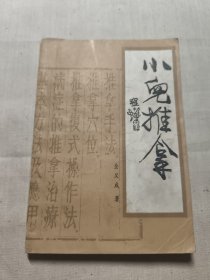 小兒推拿
金义成 著
推拿手法
推拿穴位
推拿複式操作法
病症的推拿治療